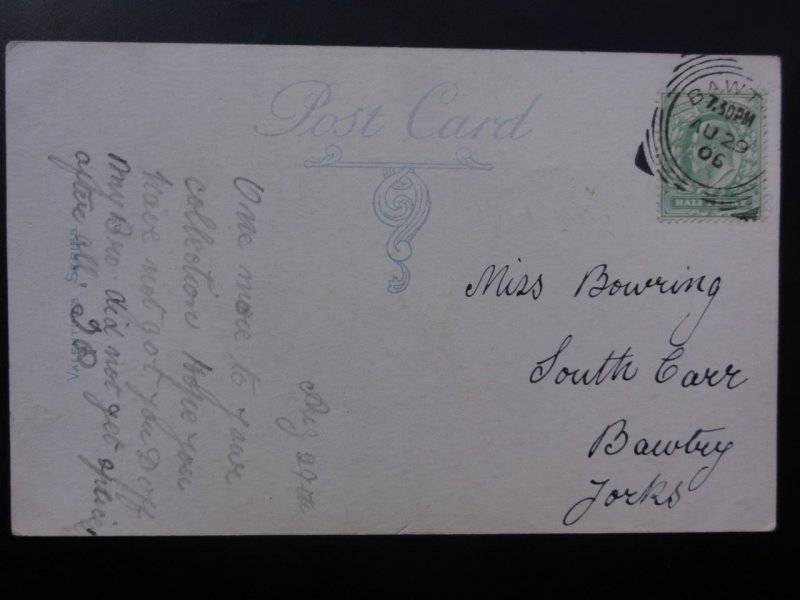 Post Card
BAWT
7.30PM
AU 29
06
HALFPENNY
Miss Bowring
South Carr
Bawtry
Yorks
Aug 29th
One more to your
collection Hope you
have not got you D off
My Bro: did not get
after all: I B
VALENTINE'S SERIES